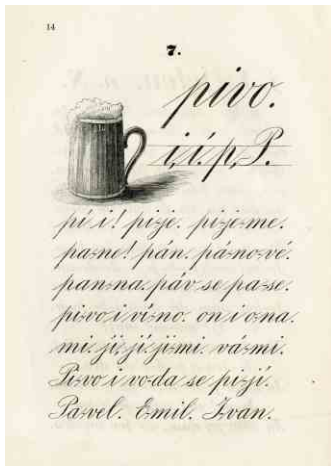 14
7.
pivo.
i, í. p, P.
pí i! pi-je. pi-je-me.
pa-ne! pán. pá-no-vé.
pan-na. páv se pa-se.
pi-vo i ví-no. on i o-na.
mi. ji, jí. ji-mi. vá-mi.
Pi-vo i vo-da se pi-jí.
Pa-vel. Emil. Ivan.